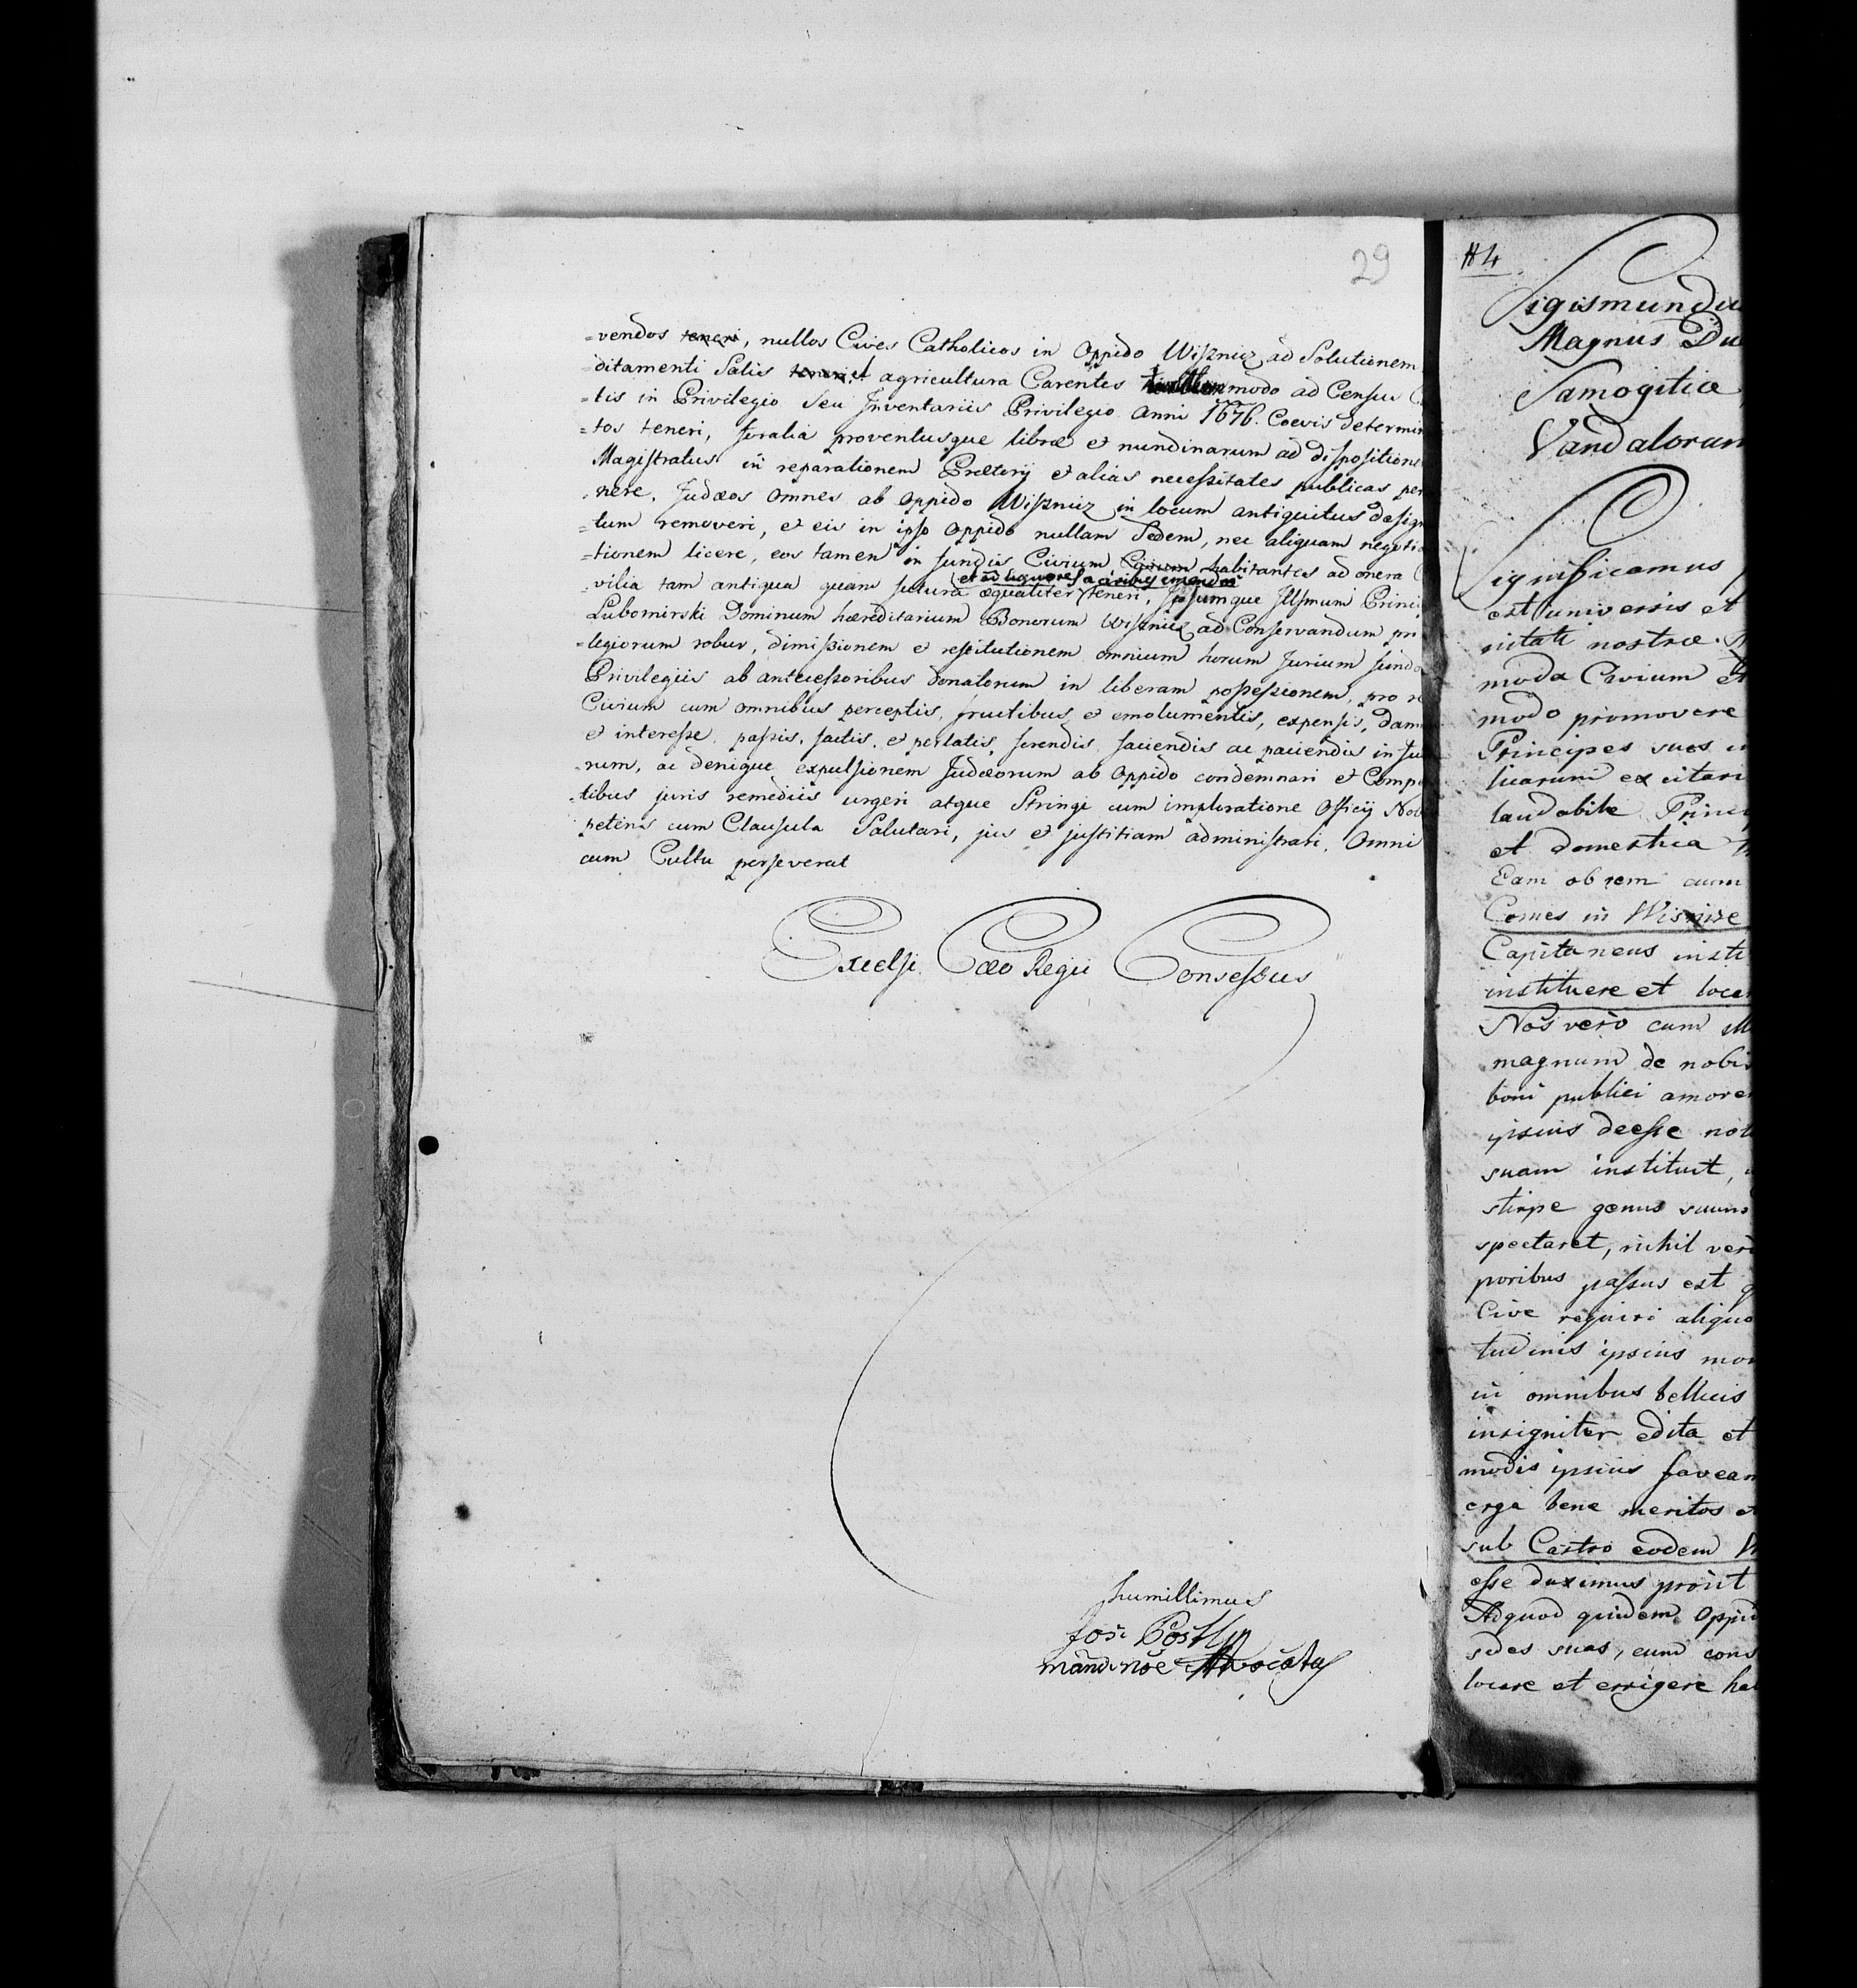 29
=vendos teneri, nullos Cives Catholicos in Oppido Wisznicz ad Solutionem
=ditamenti Salis teneri, et agricultura Carentes modo ad Census
=tis in Privilegio Seu Inventariis Privilegio Anni 1676. Coevis determin
=tos teneri, foralia proventusque libræ et nundinarum ad dispositione
Magistratus in reparationem Prætorij et alias necessitates publicas per
=nere, Judæos omnes ab oppido Wisznicz in locum antiquitus design
=tum removeri, et eis in ipso Oppido nullam Sedem, nec aliquam negotia
=tionem licere, eos tamen in fundis Civium Civium habitantes ad onera
et ad liquores a civibus emendos
vilia tam antiqua quam futura æqualiter teneri, Ipsumque Illsmum Princi
Lubomirski Dominum hæreditarium Bonorum Wisznicz ad Conservandum pri
=legiorum robur, dimissionem et restitutionem omnium horum Jurium fundo
Privilegiis ab antecessoribus donatorum in liberam possessionem, pro re
Civium cum omnibus perceptis, fructibus et emolumentis, expensis, dam
et interesse passis, factis, et perlatis, ferendis faciendis ac paciendis in futu
=rum, ac denique expulsionem Judæorum ab Oppido condemnari et Compe
=tibus juris remediis urgeri atque Stringi cum imploratione Officij Nob
petens cum Clausula Salutari, jus et justitiam administrari. Omni
cum Cultu perseverat
Excelsi Cæo Regii Consessus
humillimus
Mand. noe Advocatus
#4
Sigismundu
Magnus Du
Samogitiæ
Vandalorum
Significamus
est universis et
nitati nostræ.
moda Civium et
modo promovere
Principes suos
tuarum excitari
laudabile Princ
et domestica
Eam ob rem cum
Comes in Wisnice
Capitaneus insti
instituere et loca
Nos vero cum
magnum de nobis
boni publici amore
ipsius deesse nol
suam instituit,
stirpe genus suum
spectaret, nihil vero
poribus passus est
Cive requiri aliquo
tudinis ipsius mon
in omnibus bellicis
insigniter edita et
modis ipsius favean
erga bene meritos et
sub Castro eodem
esse duximus prout
Ad quod quidem Oppid
sedes suas, cum cons
locare et errigere hab